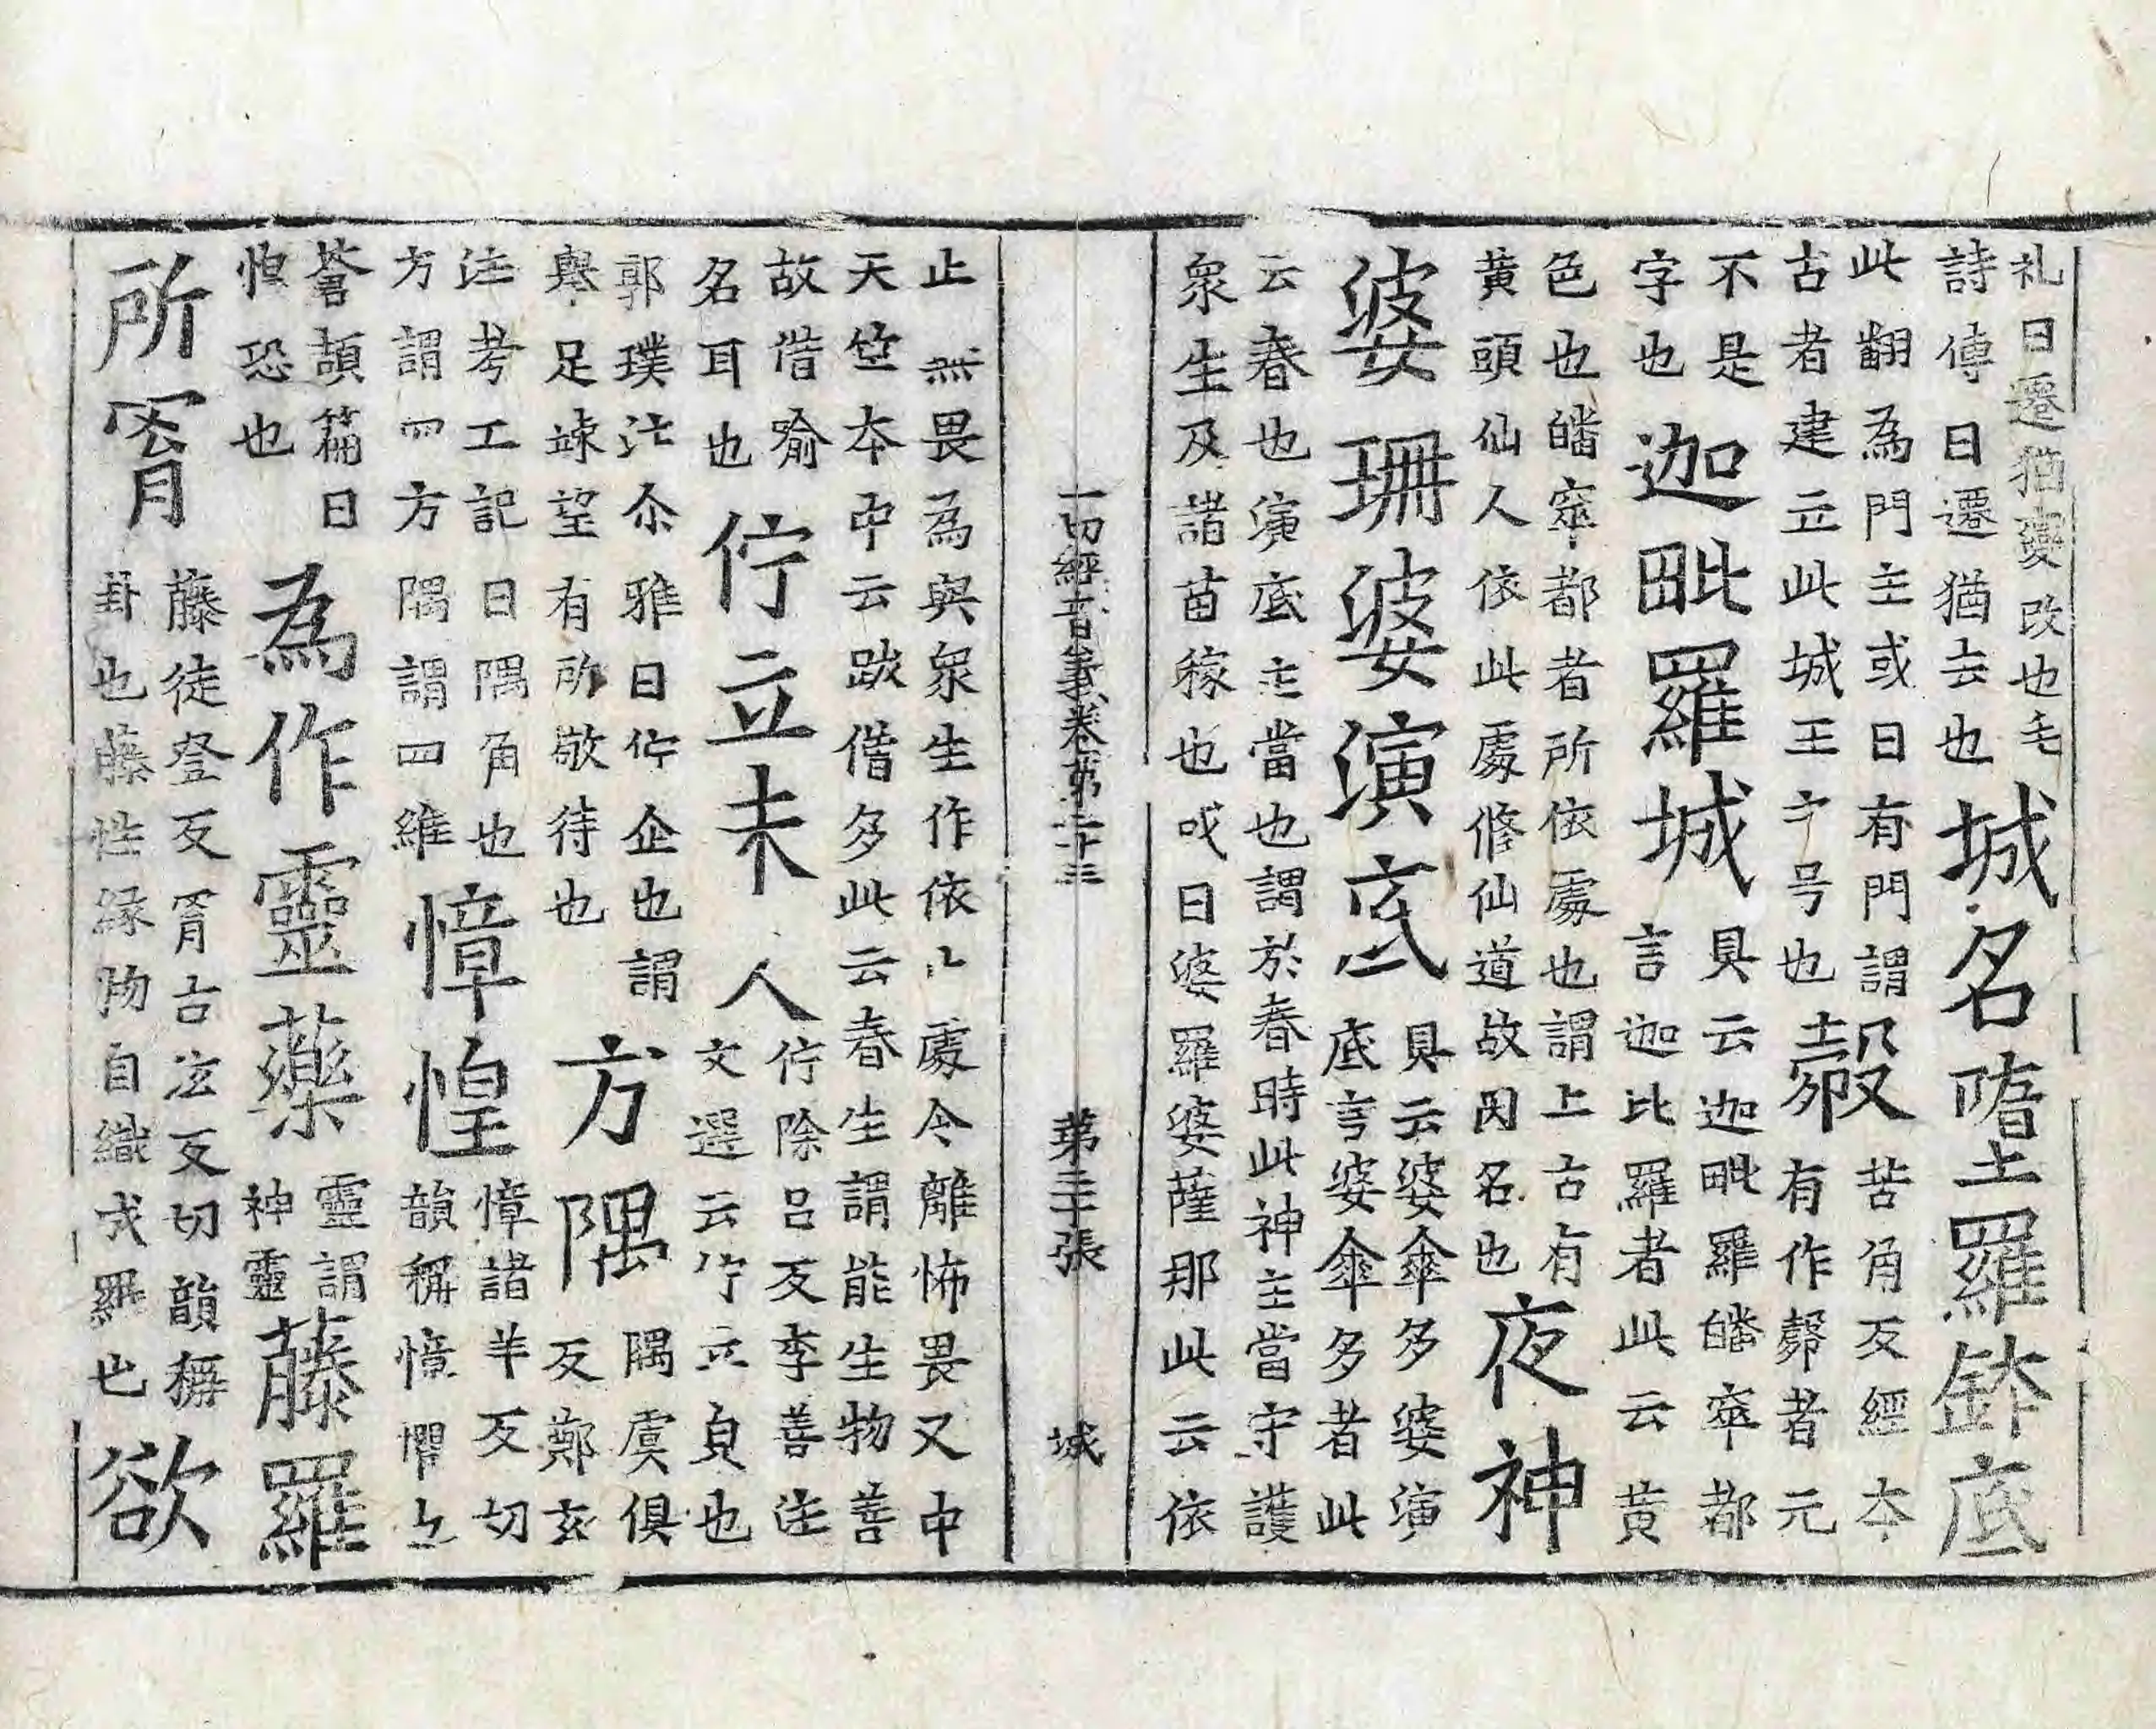 札曰遷猶變改也毛
詩傳曰遷猶去也
城名堕羅鉢底
此翻為門主或曰有門謂
古者建立此城王之号也
㲉
苦角反經本
有作㱿者元
不是
字也
迦毗羅城
具云迦毗羅皤窣都
言迦比羅者此云黄
色也皤窣都者所依處也謂上古有
黄頭仙人依此處修仙道故因名也
夜神
婆珊婆演底
具云婆傘多婆演
底言婆傘多者此
云春也演底主當也謂於春時此神主當守護
衆生及諸苗稼也或曰婆羅婆薩那此云依
一切經音義卷第二十三　第三十張　城
止無畏為與衆生作依止處令離怖畏又中
天竺本中云跋借多此云春生謂能生物善
故借喻
名耳也
佇立未人
佇除呂反李善注
文選云佇立皃也
郭璞注尒雅曰佇企也謂
舉足竦望有所敬待也
方隅
隅虞俱
反鄭玄
注考工記曰隅角也
方謂四方隅謂四維
慞惶
慞諸羊反切
韻稱慞懼也
蒼頡篇曰
惶恐也
為作靈藥
靈謂
神靈
藤羅
所罥
藤徒登反罥古泫反切韻稱
卦也藤性緣物自織成羅也
欲